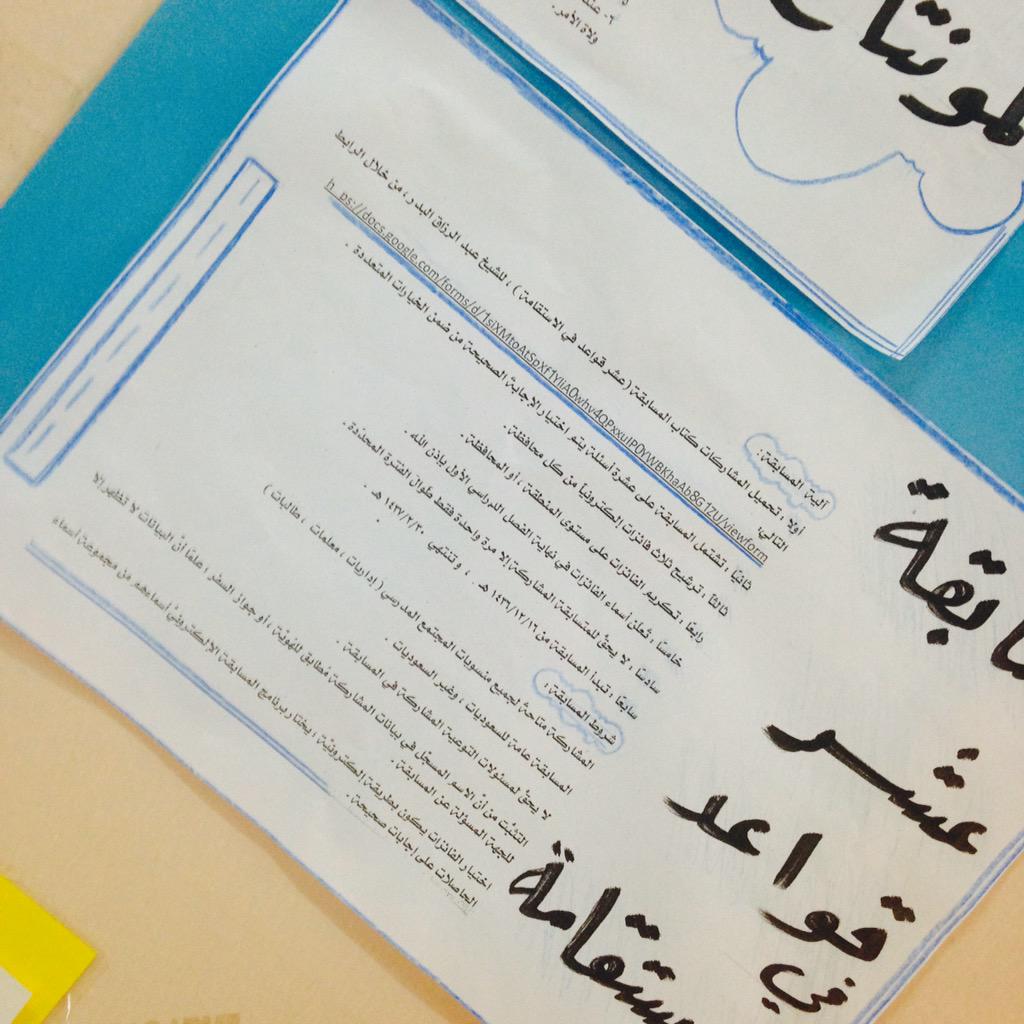 ٢. عند
ولاة الأمر.
لمونتاج
ابقة
عشر
قواعد
في
ستقامة
آلية المسابقة:
أولاً : تحميل المشاركات كتاب المسابقة (عشر قواعد في الاستقامة) ، للشيخ عبد الرزاق البدر ، من خلال الرابط
التالي:
h ps://docs.google.com/forms/d/1siXMtoAtSpXf1YiiA0whv4QPxxuIP0rWBKhaAb8G1ZU/viewform
ثانياً : تشتمل المسابقة على عشرة أسئلة يتم اختيار الإجابة الصحيحة من ضمن الخيارات المتعددة .
ثالثاً : ترشيح ثلاث فائزات إلكترونياً من كل محافظة.
رابعاً : تكريم الفائزات على مستوى المنطقة ، أو المحافظة .
خامساً : تُعلن أسماء الفائزات في نهاية الفصل الدراسي الأول بإذن الله .
سادساً : لا يحقُّ للمتسابقة المشاركة إلا مرة واحدة فقط طوال الفترة المحدّدة.
سابعاً : تبدأ المسابقة من ١٤٣٦/١٢/١٦ هـ . ، وتنتهي ١٤٣٧/٢/٣٠ هـ .
شروط المسابقة:
المشاركة متاحة لجميع منسوبات المجتمع المدرسي ( إداريات ، معلمات ، طالبات )
المسابقة عامة للسعوديات ، وغير السعوديات .
لا يحقُّ لمسئولات التوعية المشاركة في المسابقة .
التثبّت من أنّ الاسم المسجّل في بيانات المشاركة مُطابق للهويّة ، أو جواز السفر ، علمًا أنّ البيانات لا تظهر إلا
للجهة المسؤلة عن المسابقة.
اختيار الفائزات يكون بطريقة إلكترونيّة ، يختار برنامج المسابقة الإلكترونيُّ أسماءهم من مجموعة أسماء
الحاصلات على إجابات صحيحة .